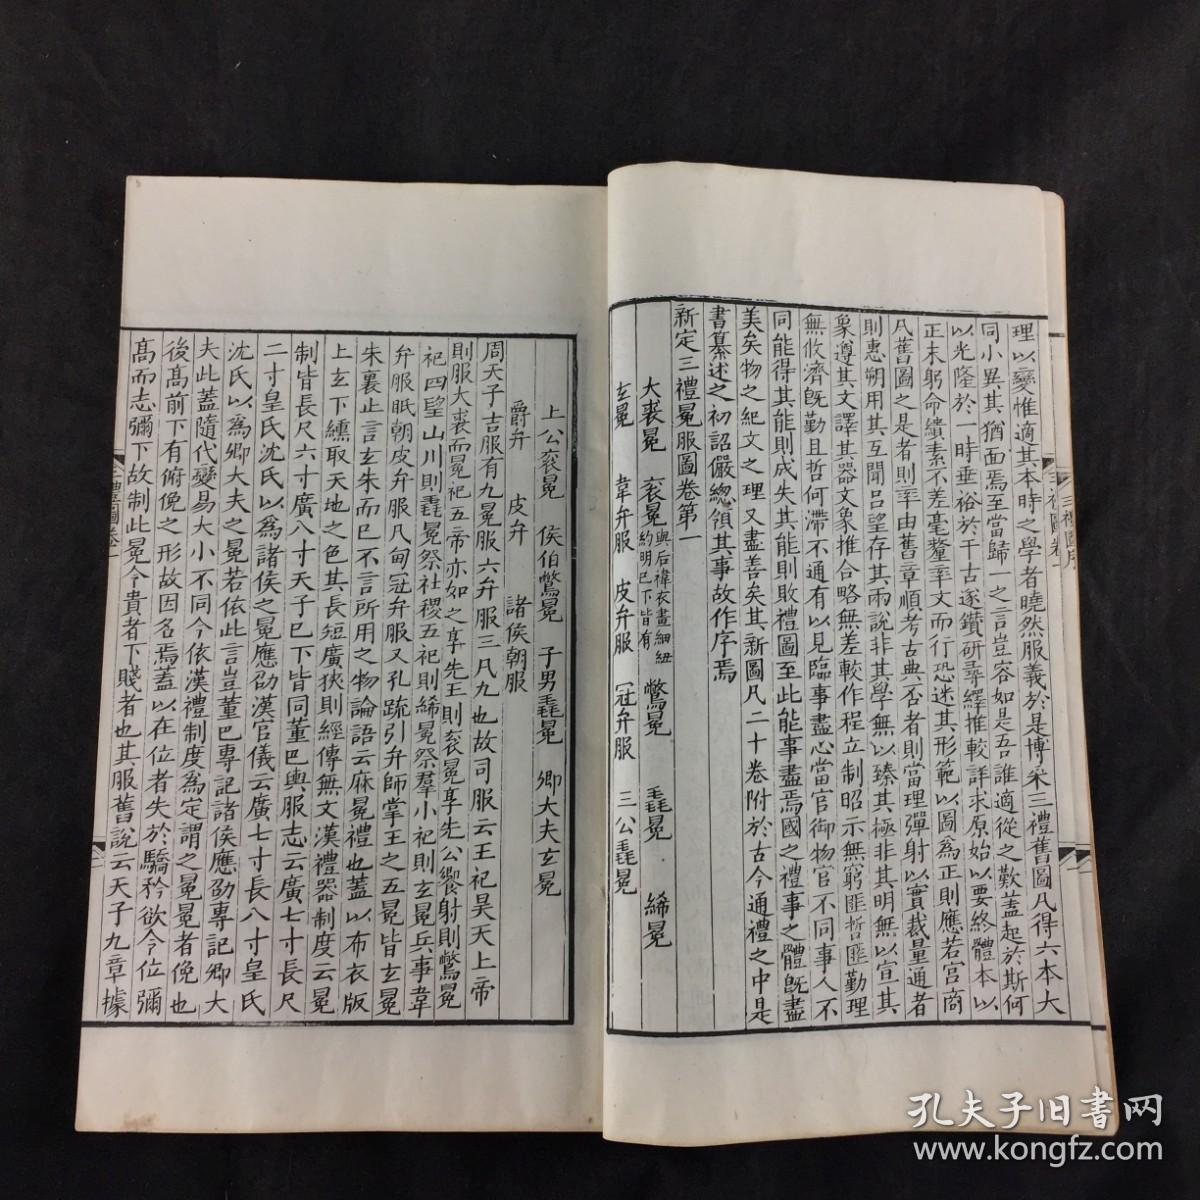 理以變惟適其本時之學者曉然服義於是博采三禮舊圖凡得六本大
同小異其猶面焉至當歸一之言豈容如是吾誰適從之歎蓋起於斯何
以光隆於一時垂裕於千古遂鑽研尋繹推較詳求原始以要終體本以
正末躬命繢素不差毫釐率文而行恐迷其形範以圖為正則應若宮商
凡舊圖之是者則率由舊章順考古典否者則當理彈射以實裁量通者
則惠朔用其互聞呂望存其兩說非其學無以臻其極非其明無以宣其
象遵其文譯其器文象推合略無差較作程立制昭示無窮匪哲匪勤理
無攸濟既勤且哲何滯不通有以見臨事盡心當官御物官不同事人不
同能得其能則成失其能則敗禮圖至此能事盡焉國之禮事之體既盡
美矣物之紀文之理又盡善矣其新圖凡二十卷附於古今通禮之中是
書纂述之初詔儼總領其事故作序焉
新定三禮冕服圖卷第一
大裘冕 袞冕與后褘衣畫細紐約明已下皆有 鷩冕 毳冕 絺冕
玄冕 韋弁服 皮弁服 冠弁服 三公毳冕
三禮圖序
三禮圖卷一
上公袞冕 侯伯鷩冕 子男毳冕 卿大夫玄冕
爵弁 皮弁 諸侯朝服
周天子吉服有九冕服六弁服三凡九也故司服云王祀昊天上帝
則服大裘而冕祀五帝亦如之享先王則袞冕享先公饗射則鷩冕
祀四望山川則毳冕祭社稷五祀則絺冕祭羣小祀則玄冕兵事韋
弁服眂朝皮弁服凡甸冠弁服又孔疏引弁師掌王之五冕皆玄冕
朱裏止言玄朱而已不言所用之物論語云麻冕禮也蓋以布衣版
上玄下纁取天地之色其長短廣狹則經傳無文漢禮器制度云冕
制皆長尺六寸廣八寸天子已下皆同董巴輿服志云廣七寸長尺
二寸皇氏沈氏以為諸侯之冕應劭漢官儀云廣七寸長八寸皇氏
沈氏以為卿大夫之冕若依此言豈董巴專記諸侯應劭專記卿大
夫此蓋隨代變易大小不同今依漢禮制度為定謂之冕冕者俛也
後高前下有俯俛之形故因名焉蓋以在位者失於驕矜欲令位彌
高而志彌下故制此冕令貴者下賤者也其服舊說云天子九章據
三禮圖卷一
孔夫子旧书网
www.kongfz.com